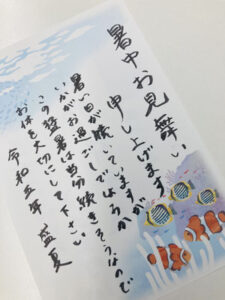 暑中お見舞い
申し上げます
暑い日が続いていますが
いかがお過ごしでしょうか
この猛暑は当分続きそうなので
お体を大切にして下さい
令和五年 盛夏